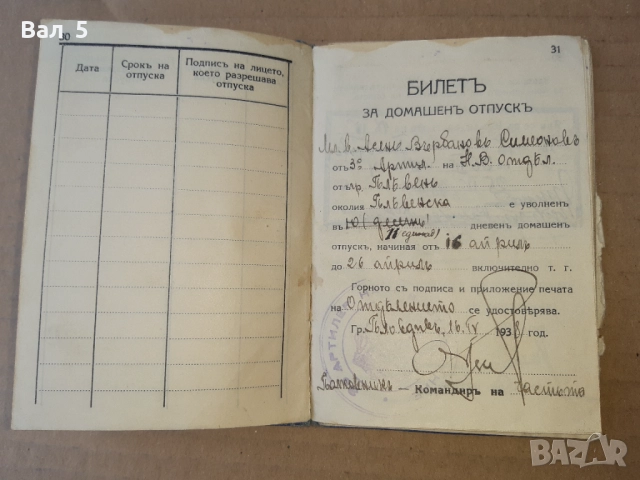 Вал 5
30
Дата
Срокъ на отпуска
Подпись на лицето, което разрешава отпуска
31
БИЛЕТЪ
ЗА ДОМАШЕНЪ ОТПУСКЪ
Асенъ Върбановъ Симеоновъ
отъ 3о Артил. на Н.В. Отдѣл.
отъ гр. Плѣвенъ
околия Плѣвенска е уволненъ
въ 10 (десетъ) дневенъ домашенъ
11 (единад)
отпускъ, начиная отъ 16 априлъ
до 26 априлъ включително т. г.
Горното съ подписа и приложение печата
на Отдѣлението се удостовѣрява.
Гр. Пловдивъ, 16.IV 193 год.
АРТИЛ
Полковникъ — Командиръ на частьта
BAZAR